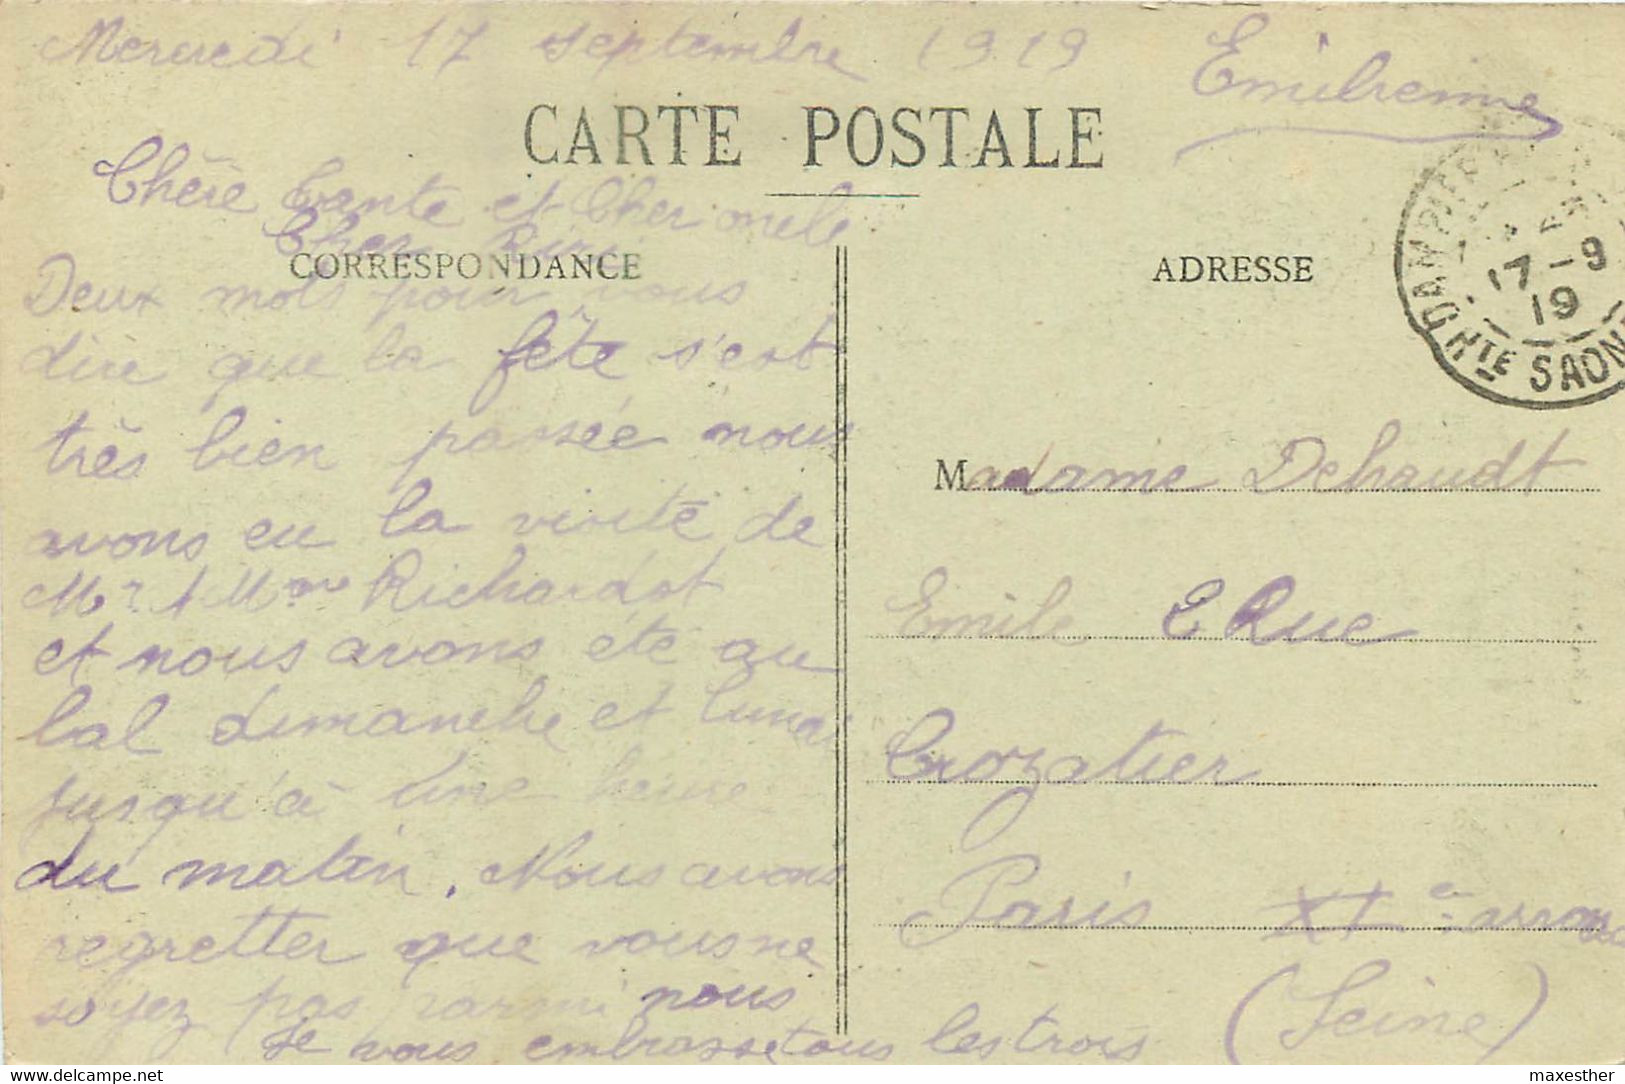 Mercredi 17 septembre 1919
Emilienne
CARTE POSTALE
Chère Tante et Cher oncle
Cher
CORRESPONDANCE
Deux mots pour vous
dire que la fête s'est
très bien passée nous
avons eu la visite de
Mr & Mme Richardot
et nous avons été au
bal dimanche et lundi
jusqu'à une heure
du matin. Nous avons
regretter que vous ne
soyez pas parmi nous
Je vous embrasse tous les trois
ADRESSE
DAMPIERRE
17-9
19
HTE SAONE
Madame Dehaudt
Emile Rue
Crozatier
Paris XIe arron
(Seine)
delcampe.net
maxesther